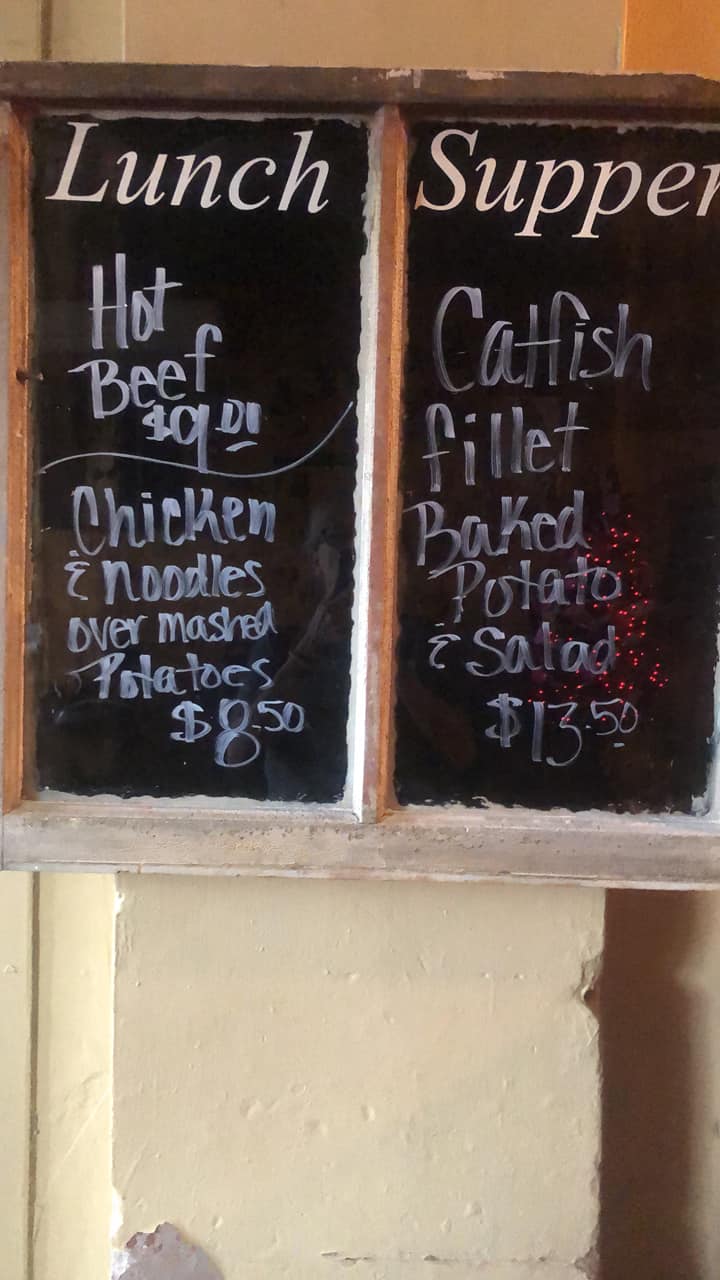 Lunch
Hot
Beef
$9.00
Chicken
& noodles
over mashed
Potatoes
$8.50
Supper
Catfish
fillet
Baked
Potato
& Salad
$13.50